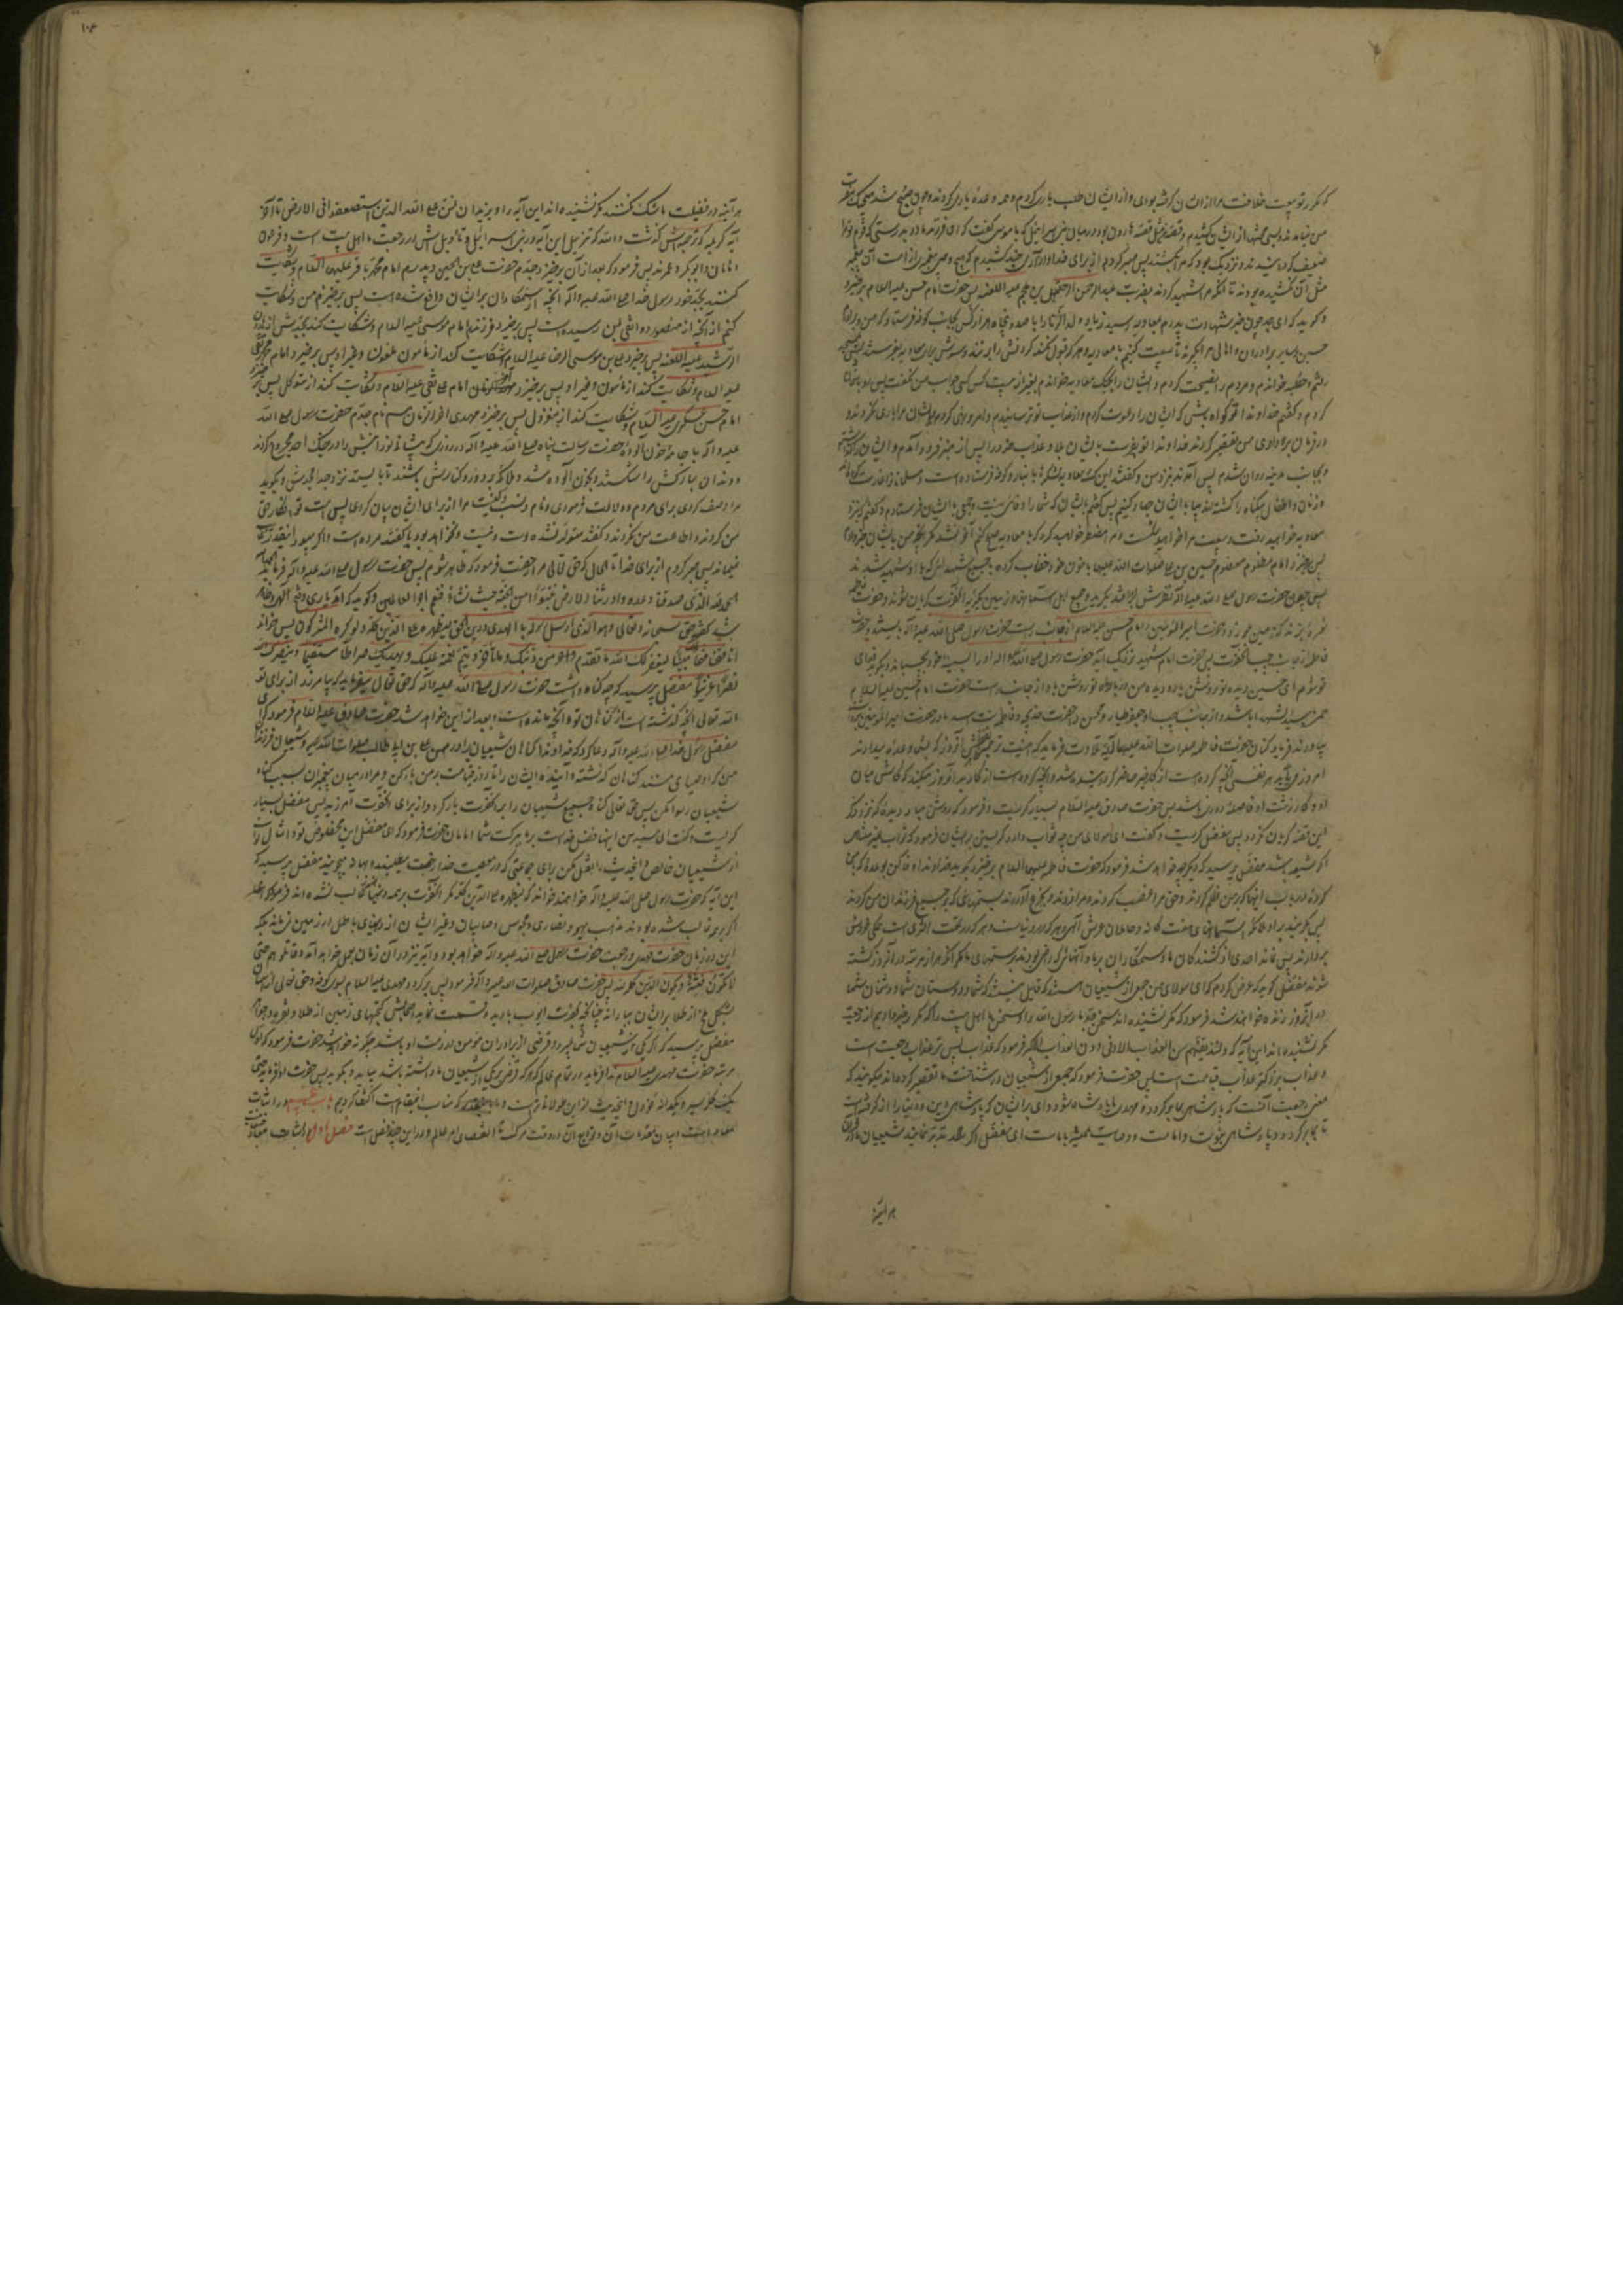 که مگر تو بیعت خلافت مرا از ایشان نگرفته بودی و از ایشان طلب یاری کردم و همه وعده یاری کردند و چون صبح شد
من نیامدند و بسی محنتها از ایشان کشیدم و قصه من مثل قصه هارون بود در میان بنی اسرائیل که با موسی گفت که ای فرزند مادر بدرستی که قوم تو مرا
ضعیف گردانیدند و نزدیک بود که مرا بکشند پس صبر کردم از برای خدا و آزاری چند کشیدم که هیچ وصی پیغمبری از امت آن پیغمبر
مثل آن نکشیده بودند تا آنکه مرا شهید کردند بضربت عبدالرحمن بن ملجم علیه اللعنه پس حضرت امام حسن علیه السلام برخیزد
و گوید که ای جد چون خبر شهادت پدرم بمعاویه رسید زیاد ولد الزنا را با صد و پنجاه هزار کس بجانب کوفه فرستاد که من و برادرم
حسین و سایر برادران و اهالی مرا بگیرند تا بیعت کنیم با معاویه و هر که قبول نکند گردنش را بزند و سرش برای معاویه بفرستد پس من بمسجد
رفتم و خطبه خواندم و مردم را نصیحت کردم و ایشان را بجنگ معاویه خواندم بغیر از بیست کس کسی جواب من نگفت پس رو بآسمان
کردم و گفتم خداوندا تو گواه باش که ایشان را دعوت کردم و از عذاب تو ترسانیدم و امر و نهی کردم و ایشان مرا یاری نکردند و
در فرمان برداری من تقصیر کردند خداوندا تو بفرست بر ایشان بلا و عذاب خود را پس از منبر فرود آمدم و ایشان را گذاشتم
و بجانب مدینه روان شدم پس آمدند بنزد من و گفتند اینک معاویه لشکرها بانبار و کوفه فرستاده است و مسلمانان را غارت کرده‌اند
و زنان و اطفال بیگناه را کشته‌اند بیا تا با ایشان جهاد کنیم پس گفتم بایشان که شما را وفائی نیست و جمعی با ایشان فرستادم و گفتم که نزد
معاویه خواهید رفت و بیعت مرا خواهید شکست و مرا مضطر خواهید کرد که با معاویه صلح کنم آخر نشد مگر آنچه من بایشان خبر دادم
پس برخیزد امام مظلوم معصوم حسین بن علی صلوات الله علیهما با خون خود خضاب کرده با جمیع شهدائی که با او شهید شدند
پس چون حضرت رسول صلی الله علیه و آله نظرش بر او افتد بگرید و جمیع اهل آسمانها و زمین بگریه آنحضرت گریان شوند و حضرت فاطمه
نعره بزند که زمین بلرزد و حضرت امیرالمؤمنین و امام حسن علیه السلام از جانب راست حضرت رسول صلی الله علیه و آله بایستند و حضرت
فاطمه از جانب چپ آنحضرت پس حضرت امام شهید نزدیک آید حضرت رسول صلی الله علیه و آله او را بسینه خود بچسباند و بگوید فدای
تو شوم ای حسین دیده تو روشن باد و دیده من درباره تو روشن باد و از جانب راست حضرت امام حسین علیه السلام
حمزه سیدالشهدا باشد و از جانب چپ او جعفر طیار و محسن را حضرت خدیجه و فاطمه بنت اسد مادر حضرت امیرالمؤمنین
بیاورند فریاد کنان و حضرت فاطمه صلوات الله علیها آیه تلاوت فرماید که اینست ترجمه ظاهرش آن روز که بشما وعده میدادند
امروز می‌آید هر نفسی آنچه کرده است از کار خیر حاضر گردانیده شده و آنچه کرده است از کار بد آرزو میکند که کاش میان
او و کار زشت او فاصله دوری باشد پس حضرت صادق علیه السلام بسیار گریست و فرمود که روشن مباد دیده‌ای که نزد ذکر
این قصه گریان نگردد پس مفضل گریست و گفت ای مولای من چه ثواب دارد گریستن بر ایشان فرمود که ثواب غیر متناهی
اگر شیعه باشد مفضل پرسید که دیگر چه خواهد شد فرمود که حضرت فاطمه علیها السلام برخیزد و بگوید خداوندا وفا کن بوعده‌ای که با من
کرده در باب آنها که بر من ظلم کردند و حق مرا غصب کردند و مرا زدند و بجزع آوردند بستمهائی که بر جمیع فرزندان من کردند
پس بگریند بر او ملائکه آسمانهای هفت گانه و حاملان عرش الهی و هر که در دنیاست و هر که در تحت الثری است همگی خروش
برآورند پس نماند احدی از کشندگان ما و ستمکاران بر ما و آنهائی که راضی بودند بستمهای ما مگر آنکه هزار مرتبه در آن روز کشته
شوند مفضل گوید که عرض کردم که ای مولای من جمعی از شیعیان هستند که قایل نیستند که شما و دوستان شما و دشمنان شما
در آن روز زنده خواهند شد فرمود که مگر نشنیده‌اند سخن جد ما رسول الله را و سخن ما اهل بیت را که مکرر خبر داده‌ایم از رجعت
مگر نشنیده‌اند این آیه که ولنذیقنهم من العذاب الادنی دون العذاب الاکبر فرمود که عذاب پس‌تر عذاب رجعت است
و عذاب بزرگتر عذاب قیامت است پس حضرت فرمود که جمعی از شیعیان در شناخت ما تقصیر کرده‌اند میگویند که
معنی رجعت آنست که پادشاهی بما برگردد و مهدی ما پادشاه شود وای بر ایشان که پادشاهی دین و دنیا را از ما گرفته است
تا بما برگردد و پادشاهی نبوت و امامت و وصایت همیشه با ماست ای مفضل اگر تدبر نمایند شیعیان ما در قرآن
هر آینه
۱۰۶
هر آینه در فضیلت ما شک نکنند مگر نشنیده‌اند این آیه را و نرید ان نمن علی الذین استضعفوا فی الارض تا آخر
آیه کریمه که ترجمه‌اش گذشت والله که تنزیل این آیه در بنی اسرائیل و تأویلش در رجعت ما اهل بیت است و فرعون
و هامان و ابوبکر و عمرند پس فرمود که بعد از آن برخیزد جدم حضرت علی بن الحسین و پدرم امام محمد باقر علیهما السلام و شکایت
کنند بجد خود رسول خدا صلی الله علیه و آله آنچه از ستمکاران بر ایشان واقع شده است پس برخیزم من و شکایت
کنم از آنچه از منصور دوانقی بمن رسیده است پس برخیزد فرزندم امام موسی علیه السلام و شکایت کند بجدش از هارون
الرشید علیه اللعنه پس برخیزد علی بن موسی الرضا علیه السلام و شکایت کند از مامون ملعون و غیر او پس برخیزد امام محمد تقی
علیه السلام و شکایت کند از مامون و غیر او پس برخیزد امام علی نقی علیه السلام و شکایت کند از متوکل پس برخیزد
امام حسن عسکری علیه السلام و شکایت کند از معتز پس برخیزد مهدی آخر الزمان هم نام جدم حضرت رسول صلی الله
علیه و آله با جامه خون‌آلود حضرت رسالت پناه صلی الله علیه و آله در روزی که پیشانی نورانیش را در جنگ احد مجروح کردند
و دندان مبارکش را شکستند و بخون آلوده شد و ملائکه بر دور و کنارش باشند تا بایستد نزد جد امجدش و بگوید
مرا وصف کردی برای مردم و دلالت فرمودی و نام و نسب و کنیت مرا از برای ایشان بیان کردی پس امت تو انکار حق
من کردند و اطاعت من نکردند و گفتند متولد نشده است و نیست و نخواهد بود یا گفتند مرده است و اگر میبود اینقدر غایب
نمیماند پس صبر کردم از برای خدا تا الحال که حق تعالی مرا رخصت فرمود که ظاهر شوم پس حضرت رسول صلی الله علیه و آله فرماید که
الحمد لله الذی صدقنا وعده و اورثنا الارض نتبوأ من الجنة حیث نشاء فنعم اجر العاملین و گوید که آمد یاری و فتح الهی و ظاهر
شد گفته حق سبحانه و تعالی و هو الذی ارسل رسوله بالهدی و دین الحق لیظهره علی الدین کله و لو کره المشرکون پس بخواند
انا فتحنا لک فتحا مبینا لیغفر لک الله ما تقدم من ذنبک و ما تأخر و یتم نعمته علیک و یهدیک صراطا مستقیما و ینصرک الله
نصرا عزیزا مفضل پرسید که چه گناه داشت حضرت رسول صلی الله علیه و آله که حق تعالی میفرماید که تا بیامرزد از برای تو
الله تعالی آنچه گذشته است از گناهان تو و آنچه مانده است و بعد از این خواهد شد حضرت صادق علیه السلام فرمود که ای
مفضل رسول خدا صلی الله علیه و آله دعا کرد که خداوندا گناهان شیعیان برادر من علی بن ابی طالب صلوات الله علیه و شیعیان فرزندان
من که اوصیای منند گناهان گذشته و آینده ایشان را تا روز قیامت بر من بار کن و مرا در میان پیغمبران بسبب گناه
شیعیان رسوا مکن پس حق تعالی گناه جمیع شیعیان را بر آنحضرت بار کرد و از برای آنحضرت آمرزید پس مفضل بسیار
گریست و گفت ای سید من اینها فضل خداست بر ما ببرکت شما امامان حضرت فرمود که ای مفضل این مخصوص تو و امثال تو است
از شیعیان خالص و این حدیث را نقل مکن برای جماعتی که در معصیت خدا رخصت میطلبند و بهانه میجویند مفضل پرسید که
این آیه که حضرت رسول صلی الله علیه و آله خواهند خواند که لیظهره علی الدین کله مگر آنحضرت بر همه دینها غالب نشده‌اند فرمود که ای مفضل
اگر بر همه غالب شده بودند مذهب یهود و نصاری و مجوس و صابیان و غیر ایشان از دینهای باطل در زمین نمیماند بلکه
این در زمان حضرت مهدی و رجعت حضرت رسول صلی الله علیه و آله خواهد بود و آیه نیز در آن زمان بعمل خواهد آمد و قاتلوهم حتی
لا تکون فتنة و یکون الدین کله لله پس حضرت صادق صلوات الله علیه و آله فرمود پس برگردد مهدی علیه السلام بسوی کوفه و حق تعالی از آسمان
بشکل ملخ از طلا بر ایشان بباراند چنانکه بحضرت ایوب بارید و قسمت نماید بر اصحابش گنجهای زمین از طلا و نقره و جواهر
مفضل پرسید که اگر یکی از شیعیان شما بمیرد و قرضی از برادران مؤمن در ذمت او باشد چگونه خواهد شد حضرت فرمود که اول
مرتبه حضرت مهدی علیه السلام ندا فرماید در تمام عالم که هر که قرضی بر یکی از شیعیان ما داشته باشد بیاید و بگوید پس حضرت ادا فرماید حتی
یک کله سیر و یکدانه خردل و این حدیث از این طولانی‌تر است و ما باینقدر که مناسب این مقام است اکتفا کردیم باب پنجم در اثبات
معاد است و بیان مقدمات آن و توابع آن از وقت مرگ تا انقضای امر عالم و در این چند فصل است فصل اول در اثبات معاد